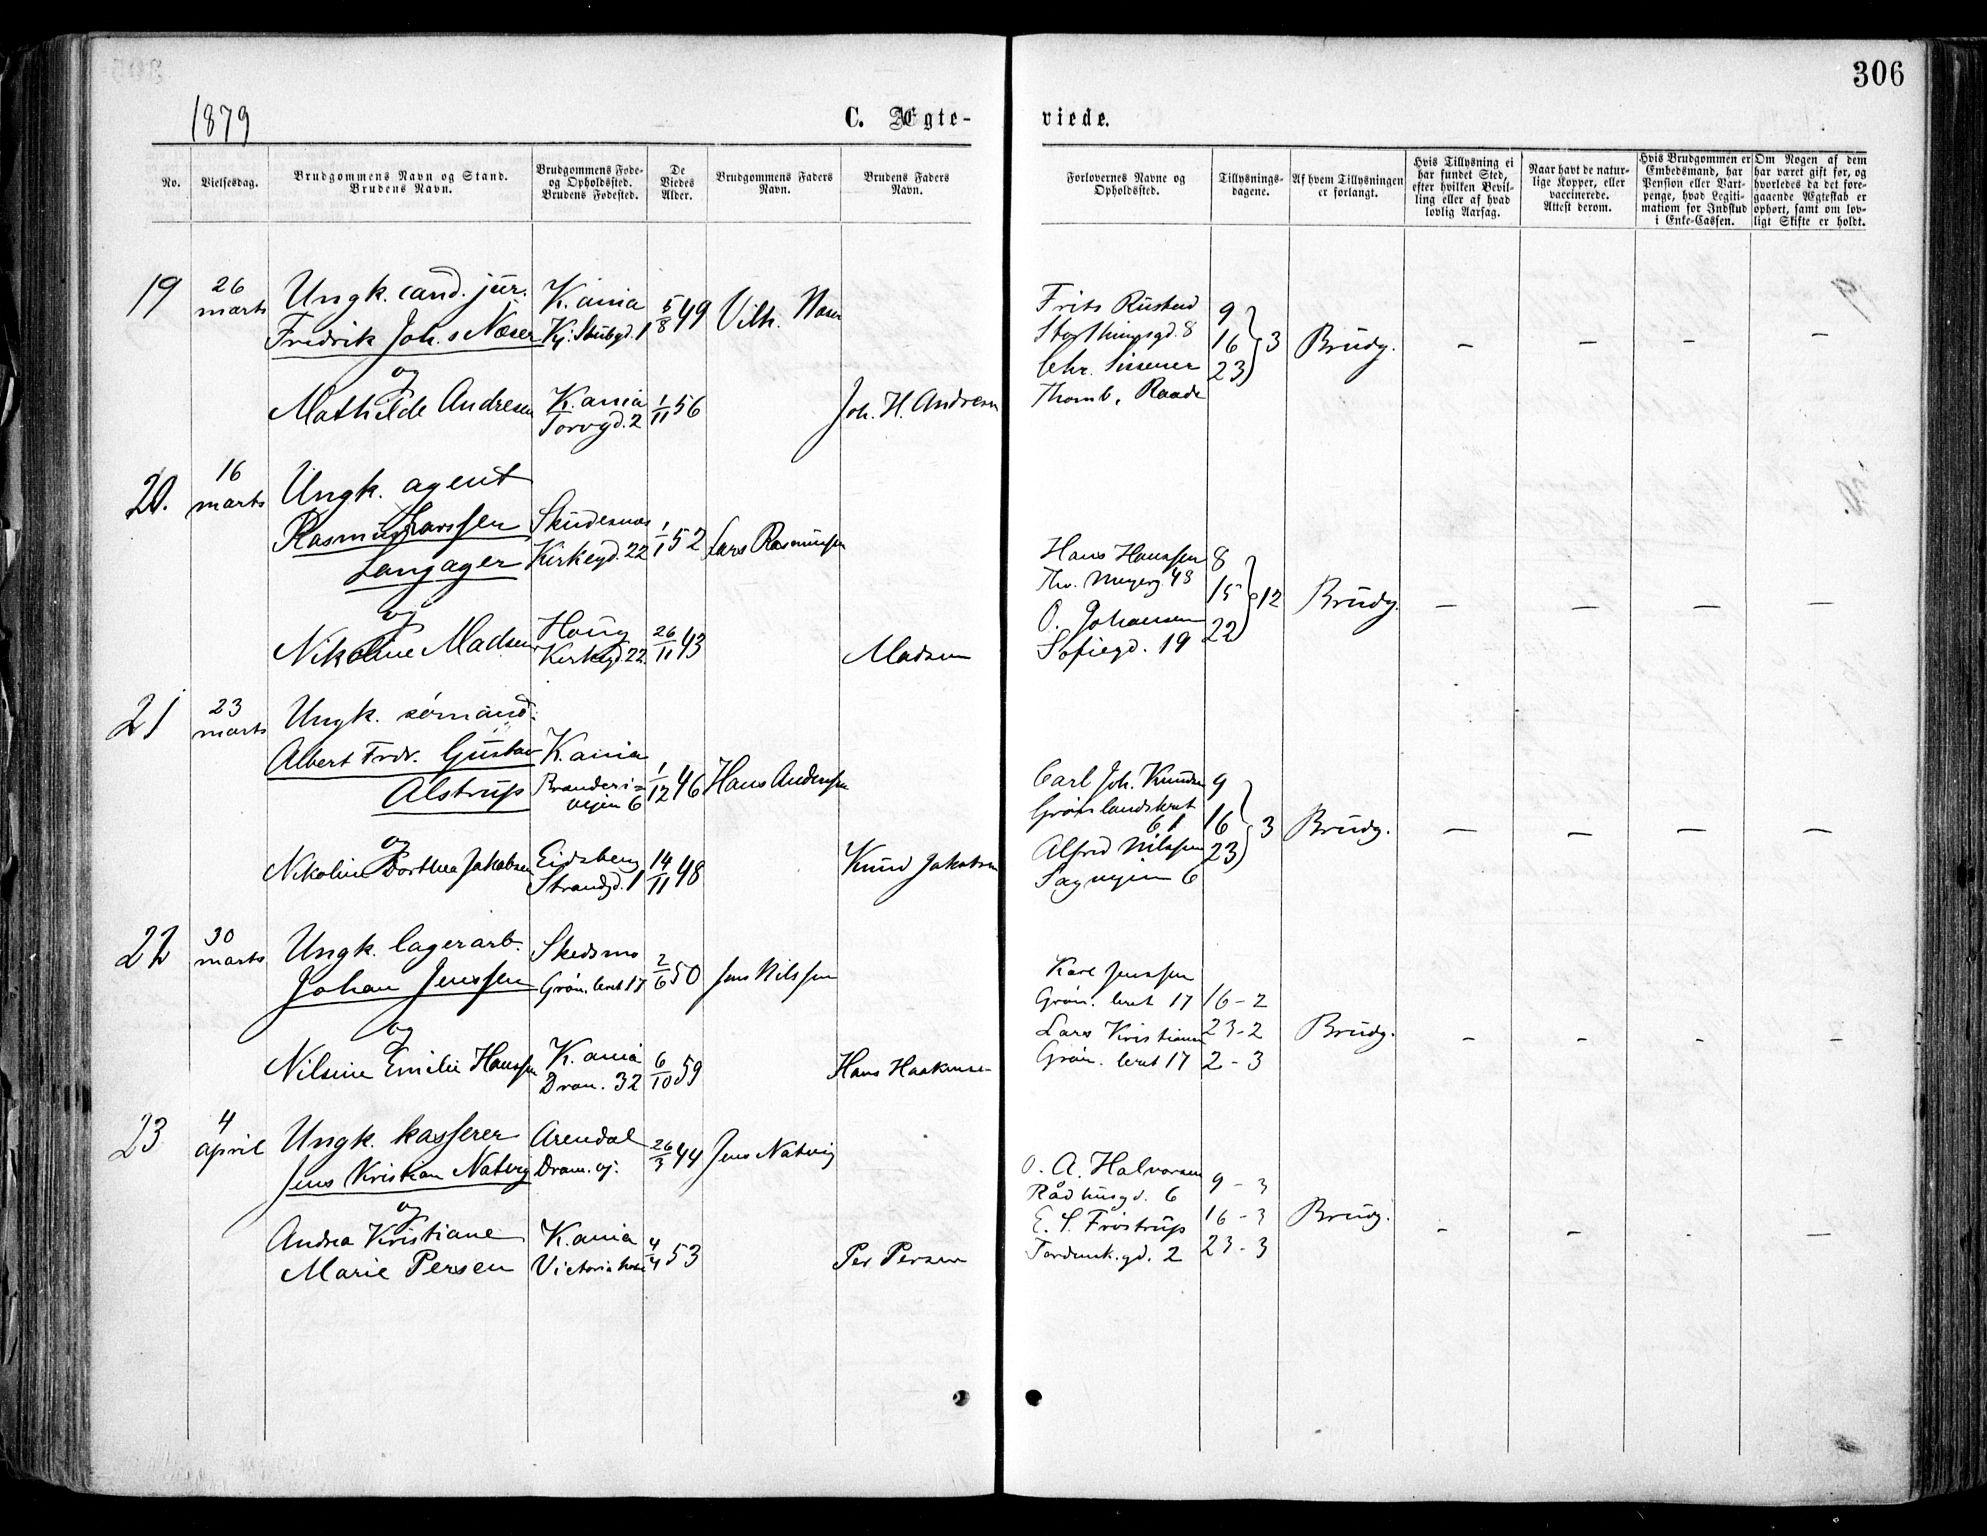 306
1879
C. Ægte-
viede.
No.
Vielsesdag.
Brudgommens Navn og Stand.
Brudens Navn.
Brudgommens Føde-
og Opholdssted.
Brudens Fødested.
De
Viedes
Alder.
Brudgommens Faders
Navn.
Brudens Faders
Navn.
Forlovernes Navne og
Opholdssted.
Tillysnings-
dagene.
Af hvem Tillysningen
er forlangt.
Hvis Tillysning ei
har fundet Sted,
efter hvilken Bevil-
ling eller af hvad
lovlig Aarsag.
Naar havt de natur-
lige Kopper, eller
vaccinerede.
Attest derom.
Hvis Brudgommen er
Embedsmand, har
Pension eller Vart-
penge, hvad Legiti-
mation for Indskud
i Enke-Cassen.
Om Nogen af dem
har været gift før, og
hvorledes da det fore-
gaaende Ægteskab er
ophørt, samt om lov-
ligt Skifte er holdt.
19
26
marts
Ungk. cand. jur.
Fredrik Joh.s Næser
og
Mathilde Andresen
K.ania
Kj. Stubgd. 1
K.ania
Torvgd. 2
5/8 49
1/11 56
Vilh. Næser
Joh. H. Andresen
Frits Rustad
Storthingsgd. 8
Chr. Sissener
Thomb. Raade
9
16
23
3
Brudg.
— — — —
20.
16
marts
Ungk. agent
Rasmus Larssen
Langager
og
Nikoline Madsen
Skudesnæs
Kirkegd. 22
Houg
Kirkegd. 22
1/1 52
26/11 43
Lars Rasmussen
Madsen
Hans Hanssen
Thv. Meyersg 48
O. Johansen
Sofiegd. 19
8
15
22
12
Brudg.
— — — —
21
23
marts
Ungk. sømand.
Albert Fredr. Gustav
Alstrup
og
Nikoline Dorthea Jakobsen
K.ania
Branderi=
vejen 6
Eidsberg
Strandgd. 1
1/12 46
14/11 48
Hans Anderssen
Knud Jakobsen
Carl Joh. Knudsen
Grønlandsleret
61
Alfred Nilssen
Sagvejen 6
9
16
23
3
Brudg.
— — — —
22
30
marts
Ungk. lagerarb.
Johan Jenssen
og
Nilsine Emilie Hanssen
Skedsmo
Grøn. leret 17
K.ania
Dram. 32
2/6 50
6/10 59
Jens Nilssen
Hans Haakense-
Karl Jenssen
Grøn. leret 17
Lars Kristiansen
Grøn. leret 17
16-2
23-2
2-3
Brudg.
— — — —
23
4
april
Ungk. kasserer
Jens Kristian Natvig
og
Andrea Kristiane
Marie Persen
Arendal
Dram. vj.
K.ania
Victoria
26/3 44
4/4 53
Jens Natvig
Per Persen
O. A. Halvorsen
Rådhusgd. 6
E. S. Frostrup
Tordensk.gd. 2
9-3
16-3
23-3
Brudg.
— — — —